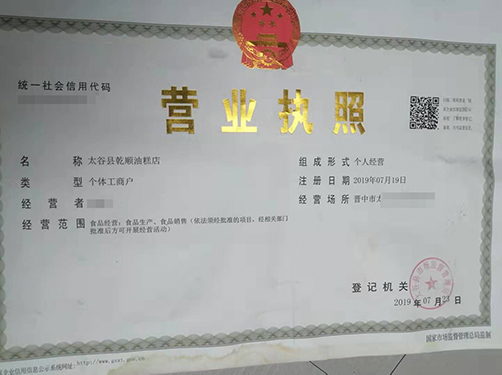 统一社会信用代码
营业执照
名 称 太谷县乾顺油糕店
类 型 个体工商户
经 营 者
经 营 范 围 食品经营：食品生产、食品销售（依法须经批准的项目，经相关部门
批准后方可开展经营活动）
组 成 形 式 个人经营
注 册 日 期 2019年07月19日
经 营 场 所 晋中市太
登 记 机 关
2019 年 07 月 23 日
国家市场监督管理总局监制